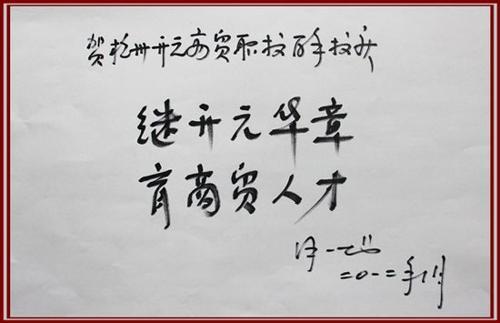 贺杭州开元商贸职校百年校庆
继开元华章
育商贸人才
二0一二年 月